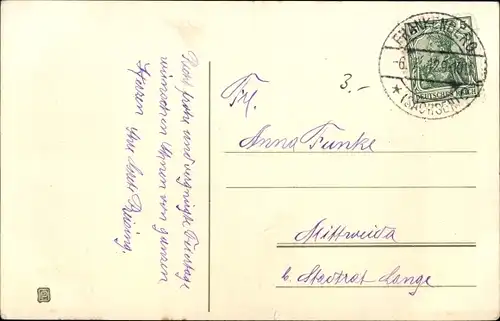 Recht frohe und vergnügte Feiertage
wünschen Ihnen von ganzen
Herzen Ihre
FRANKENBERG
(SACHSEN)
DEUTSCHES REICH
3.-
Frl.
Anna Funke
Mittweida
b. Stadtrat Lange